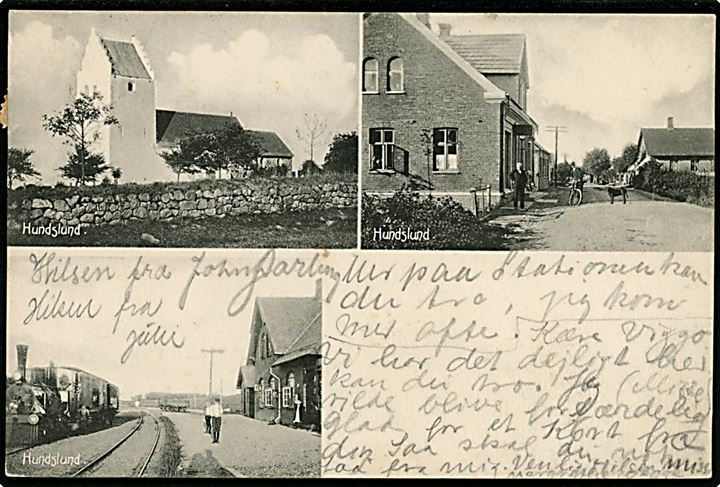 Hundslund.
Hundslund
Hilsen fra John Darling
Hilsen fra
Juli
Hundslund.
Her paa Stationen kan
du tro, jeg kom
mer ofte. Kære Viggo
Vi har det dejligt Her
kan du tro. Jeg
vilde blive forfærdelig
glad for et Kort fra
dig Saa skal du nok
faa fra mig. Venlig Hilsen